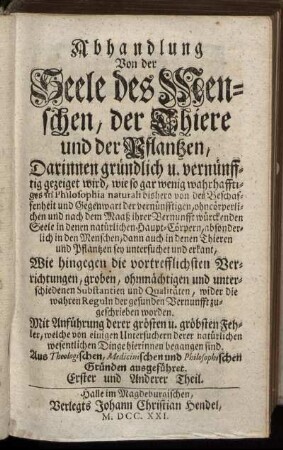 Abhandlung
Von der
Seele des Men-
schen, der Thiere
und der Pflantzen,
Darinnen gründlich u. vernünff-
tig gezeiget wird, wie so gar wenig wahrhafftí-
ges in Philosophia naturali bishero von der Beschaf-
fenheit und Gegenwart der vernünfftigen, ohncörperli-
chen und nach dem Maaß ihrer Vernunfft würckenden
Seele in denen natürlichen-Haupt-Cörpern, absonder-
lich in den Menschen, dann auch in denen Thieren
und Pflantzen sey untersuchet und erkant,
Wie hingegen die vortrefflichsten Ver-
richtungen, groben, ohnmächtigen und unter-
schiedenen Substantien und Qualitäten, wider die
wahren Reguln der gesunden Vernunfft zu-
geschrieben worden.
Mit Anführung derer grösten u. gröbsten Feh-
ler, welche von einigen Untersuchern derer natürlichen
wesentlichen Dinge hierinnen begangen sind.
Aus Theologischen, Medicinischen und Philosophischen
Gründen ausgeführet.
Erster und Anderer Theil.
Halle im Magdeburgischen,
Verlegts Johann Christian Hendel,
M. DCC. XXI.